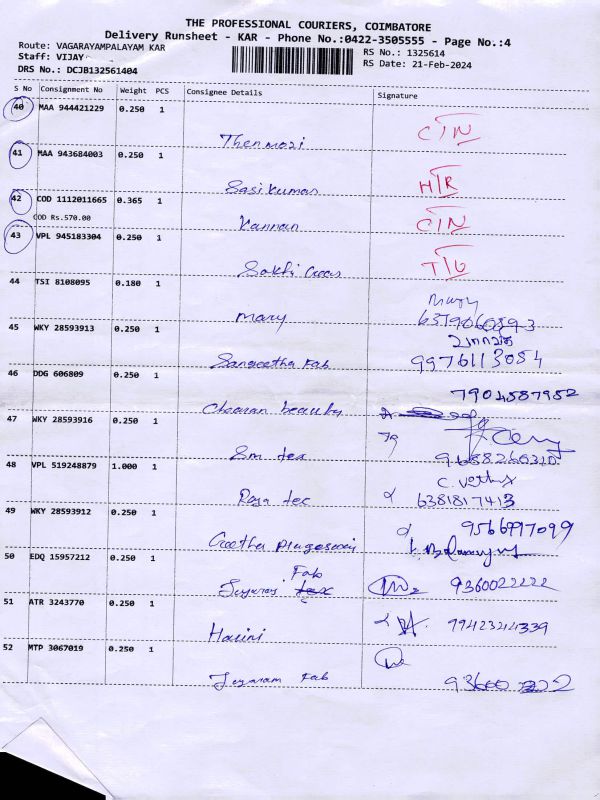 THE PROFESSIONAL COURIERS, COIMBATORE
Delivery Runsheet - KAR - Phone No.:0422-3505555 - Page No.:4
Route: VAGARAYAMPALAYAM KAR
RS No.: 1325614
Staff: VIJAY
RS Date: 21-Feb-2024
DRS No.: DCJB132561404
S No Consignment No Weight PCS Consignee Details Signature
40 MAA 944421229 0.250 1
Thenmozi C/N
41 MAA 943684003 0.250 1
Sasikumar H/R
42 COD 1112011665 0.365 1
COD Rs.570.00 Kannan C/N
43 VPL 945183304 0.250 1
Sakhi T/G
44 TSI 8108095 0.180 1 Mary
Mary 6379060893
45 WKY 28593913 0.250 1
Sangeetha Fab 9976113084
46 DDG 606809 0.250 1 7904587952
beauty
47 WKY 28593916 0.250 1
Sm tex
48 VPL 519248879 1.000 1
Raja tec 6381817413
49 WKY 28593912 0.250 1 9566997099
Geetha
50 EDQ 15957212 0.250 1 Fab
9360022222
51 ATR 3243770 0.250 1
Harini 7942324339
52 MTP 3067019 0.250 1
Jeyaram Fab